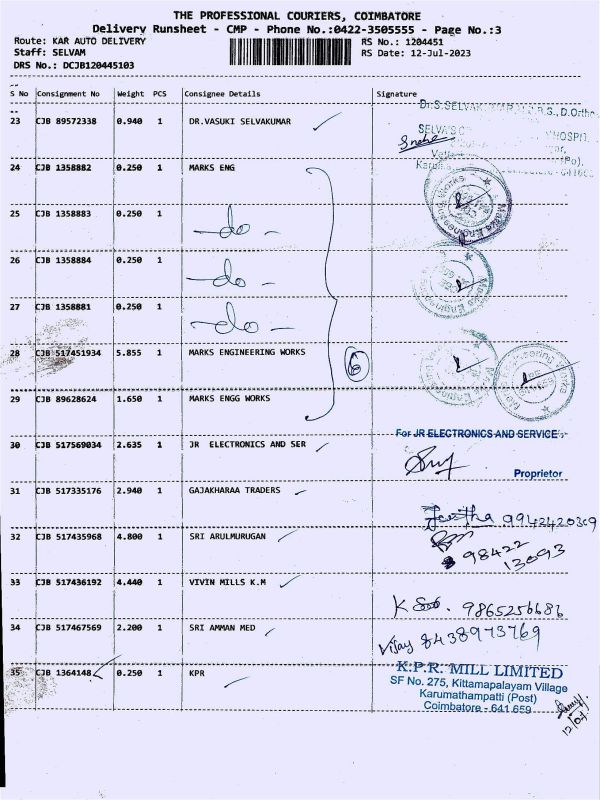 THE PROFESSIONAL COURIERS, COIMBATORE
Delivery Runsheet - CMP - Phone No.:0422-3505555 - Page No.:3
Route: KAR AUTO DELIVERY RS No.: 1204451
Staff: SELVAM RS Date: 12-Jul-2023
DRS No.: DCJB120445103
S No Consignment No Weight PCS Consignee Details Signature
Dr.S.SELVAK
23 CJB 89572338 0.940 1 DR.VASUKI SELVAKUMAR
Sneha
24 CJB 1358882 0.250 1 MARKS ENG
25 CJB 1358883 0.250 1 -do-
26 CJB 1358884 0.250 1 -do-
27 CJB 1358881 0.250 1 -do-
28 CJB 517451934 5.855 1 MARKS ENGINEERING WORKS
6
29 CJB 89628624 1.650 1 MARKS ENGG WORKS
For JR ELECTRONICS AND SERVICE
30 CJB 517569034 2.635 1 JR ELECTRONICS AND SER
Proprietor
31 CJB 517335176 2.940 1 GAJAKHARAA TRADERS
9942420309
32 CJB 517435968 4.800 1 SRI ARULMURUGAN
98422
13093
33 CJB 517436192 4.440 1 VIVIN MILLS K.M
9865256686
34 CJB 517467569 2.200 1 SRI AMMAN MED
Vijay 8438973769
35 CJB 1364148 0.250 1 KPR
K.P.R. MILL LIMITED
SF No. 275, Kittamapalayam Village
Karumathampatti (Post)
Coimbatore - 641 659